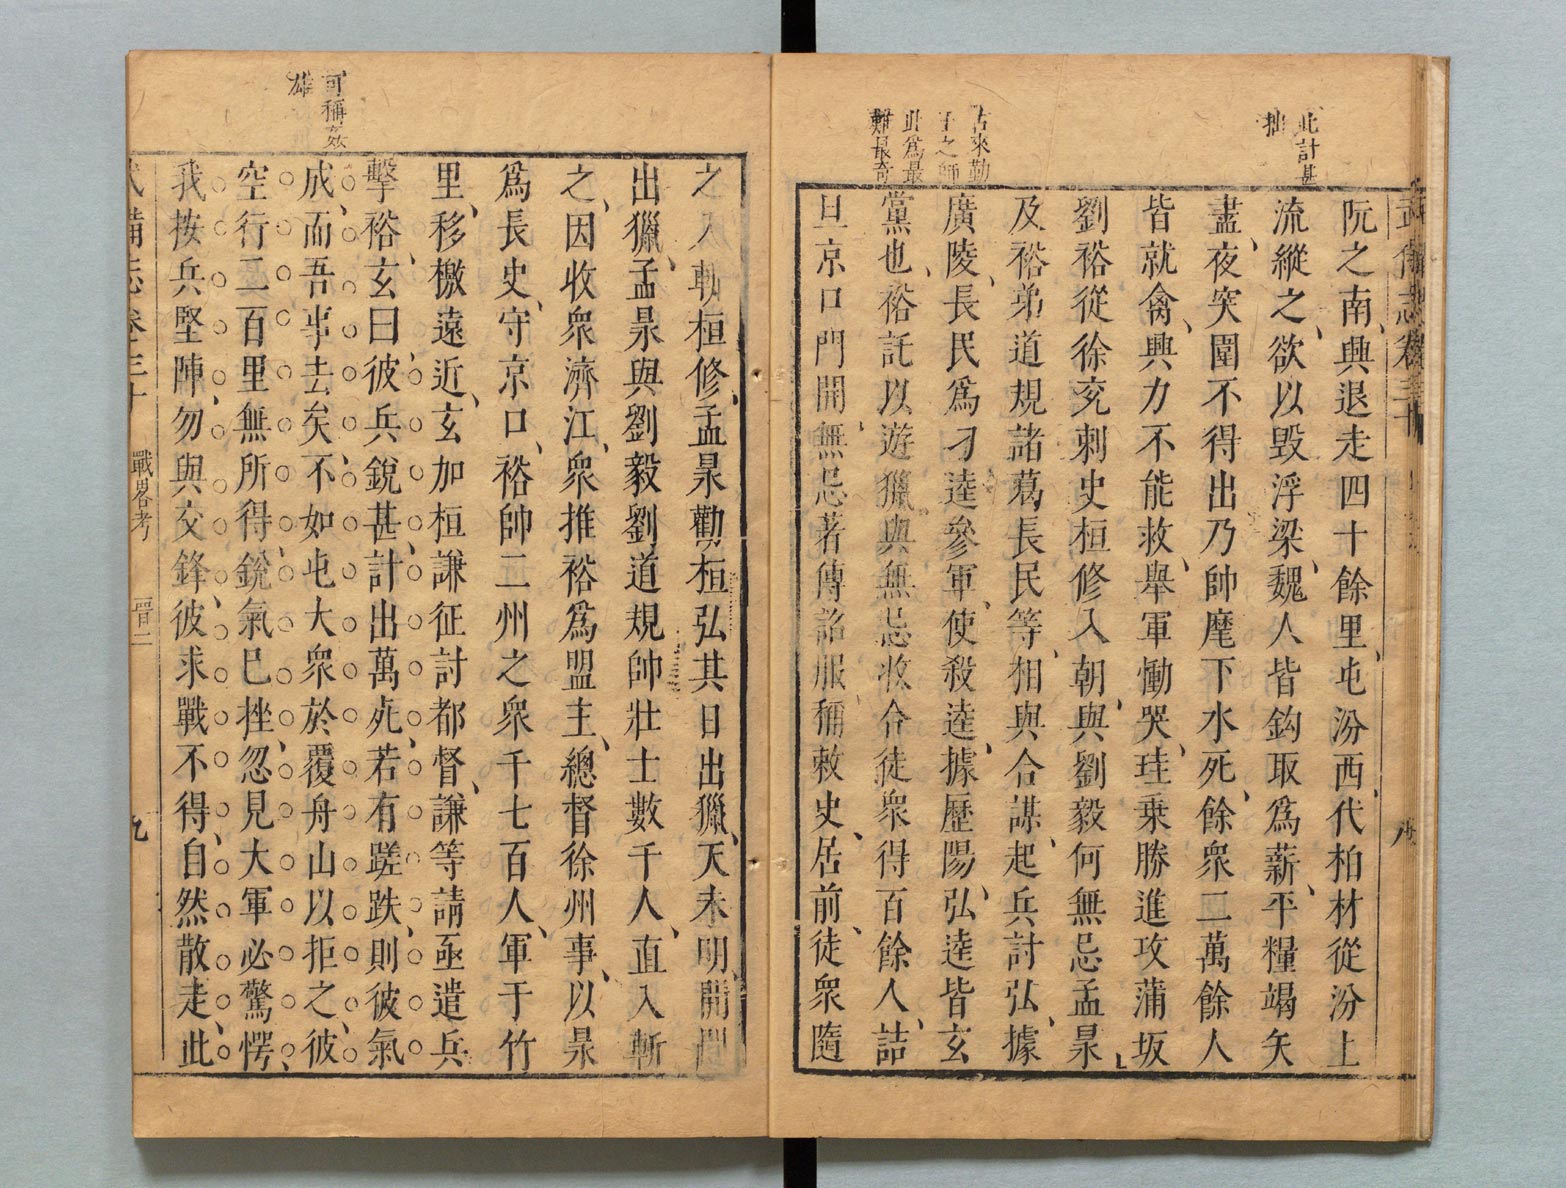 此計甚
拙
古來勤
王之師
此爲最
難最奇
阮之南興退走四十餘里屯汾西代柏材從汾上
流縱之欲以毀浮梁魏人皆鈎取爲薪平糧竭矢
盡夜突圍不得出乃帥麾下水死餘衆二萬餘人
皆就禽興力不能救舉軍慟哭珪乗勝進攻蒲坂
劉裕從徐兖刺史桓修入朝與劉毅何無忌孟㫤
及裕弟道規諸葛長民等相與合謀起兵討弘據
廣陵長民爲刁逵參軍使殺逵據歷陽弘逵皆玄
黨也裕託以遊獵與無忌收合徒衆得百餘人詰
旦京口門開無忌著傳詔服稱敕史居前徒衆隨
可稱姦
雄
之入斬桓修孟㫤勸桓弘其日出獵天未明開門
出獵孟㫤與劉毅劉道規帥壯士數千人直入斬
之因收衆濟江衆推裕爲盟主總督徐州事以㫤
爲長史守京口裕帥二州之衆千七百人軍于竹
里移檄遠近玄加桓謙征討都督謙等請亟遣兵
擊裕玄曰彼兵銳甚計出萬死若有蹉跌則彼氣
成而吾事去矣不如屯大衆於覆舟山以拒之彼
空行二百里無所得銳氣巳挫忽見大軍必驚愕
我按兵堅陣勿與交鋒彼求戰不得自然散走此
武備志卷三十 戰畧考 晉二 九